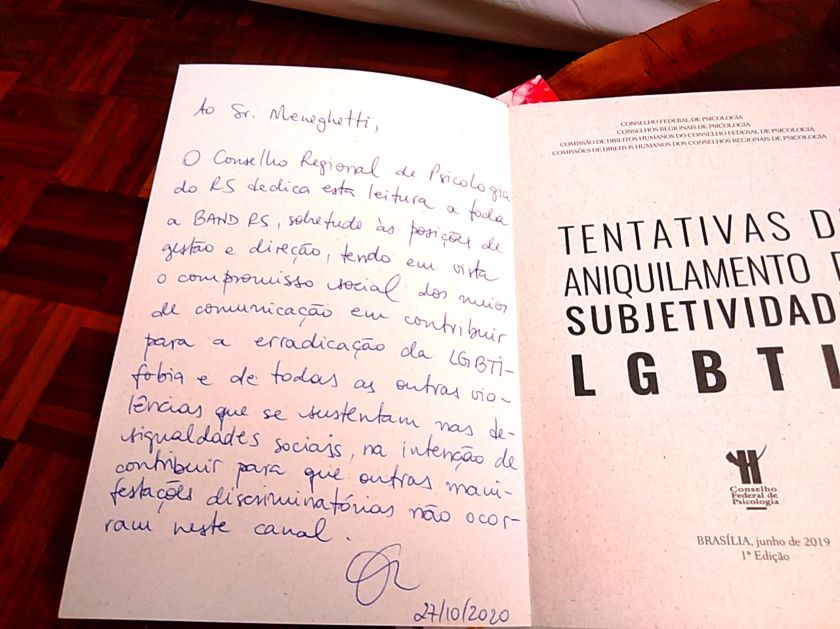 Ao Sr. Meneghetti,
O Conselho Regional de Psicologia
do RS dedica esta leitura a toda
a BAND RS, sobretudo às posições de
gestão e direção, tendo em vista
o compromisso social dos meios
de comunicação em contribuir
para a erradicação da LGBTI-
fobia e de todas as outras vio-
lências que se sustentam nas de-
sigualdades sociais, na intenção de
contribuir para que outras mani-
festações discriminatórias não ocor-
ram neste canal.
27/10/2020
CONSELHO FEDERAL DE PSICOLOGIA
CONSELHOS REGIONAIS DE PSICOLOGIA
COMISSÃO DE DIREITOS HUMANOS DO CONSELHO FEDERAL DE PSICOLOGIA
COMISSÕES DE DIREITOS HUMANOS DOS CONSELHOS REGIONAIS DE PSICOLOGIA
TENTATIVAS D
ANIQUILAMENTO D
SUBJETIVIDAD
LGBTI
Conselho
Federal de
Psicologia
BRASÍLIA, junho de 2019
1ª Edição